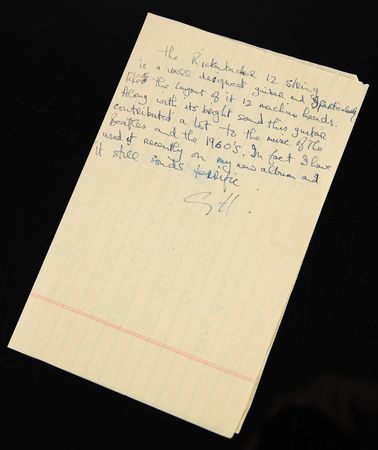 the Rickenbacker 12 string
is a well designed guitar and I particularly
liked the layout of it 12 machine heads.
Along with its bright sound this guitar
contributed a lot to the music of the
Beatles and the 1960's. In fact I have
used it recently on my new album and
it still sounds terrific.